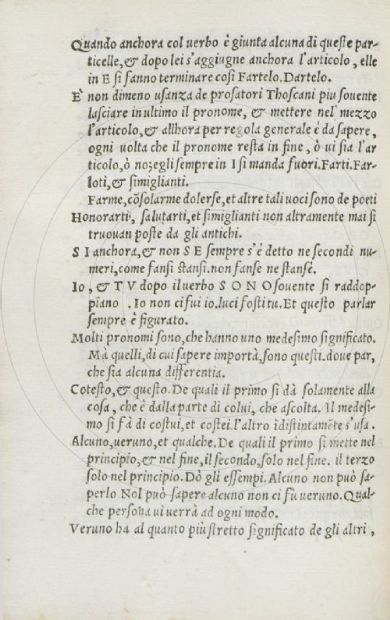 Quando anchora col uerbo è giunta alcuna di queste par
ticelle, & dopo lei s'aggiugne anchora l'articolo, elle
in E si fanno terminare così Fartelo. Dartelo.
E' non dimeno usanza de prosatori Thoscani piu souente
lasciare in ultimo il pronome, & mettere nel mezzo
l'articolo, & allhora per regola generale è da sapere,
ogni uolta che il pronome resta in fine, ò ui sia l'ar
ticolo, ò no; egli sempre in I si manda fuori. Farti. Far
loti, & simiglianti.
Farme, cōsolarme dolerse, et altre tali uoci sono de poeti
Honorarti, salutarti, et simiglianti non altramente mai si
truouan poste da gli antichi.
S I anchora, & non S E sempre s'è detto ne secondi nu
meri, come fansi stansi. non fanse ne stanse.
Io, & T V dopo il uerbo S O N O souente si raddop
piano . Io non ci fui io. Tuci fosti tu. Et questo parlar
sempre è figurato.
Molti pronomi sono, che hanno uno medesimo significato.
Mà quelli, di cui sapere importà, sono questi. doue par,
che sia alcuna differentia.
Cotesto, & questo. De quali il primo si dà solamente alla
cosa, che è dalla parte di colui, che ascolta. Il medesi-
mo si fà di costui, et costei. l'altro ĩdistintamẽte s'usa.
Alcuno, ueruno, et qualche. De quali il primo si mette nel
principio, & nel fine, il secondo, solo nel fine. il terzo
solo nel principio. Dò gli essempi. Alcuno non può sa-
perlo Nol può sapere alcuno non ci fù ueruno. Qual-
che persona ui uerrà ad ogni modo.
Veruno ha al quanto più stretto significato de gli altri,